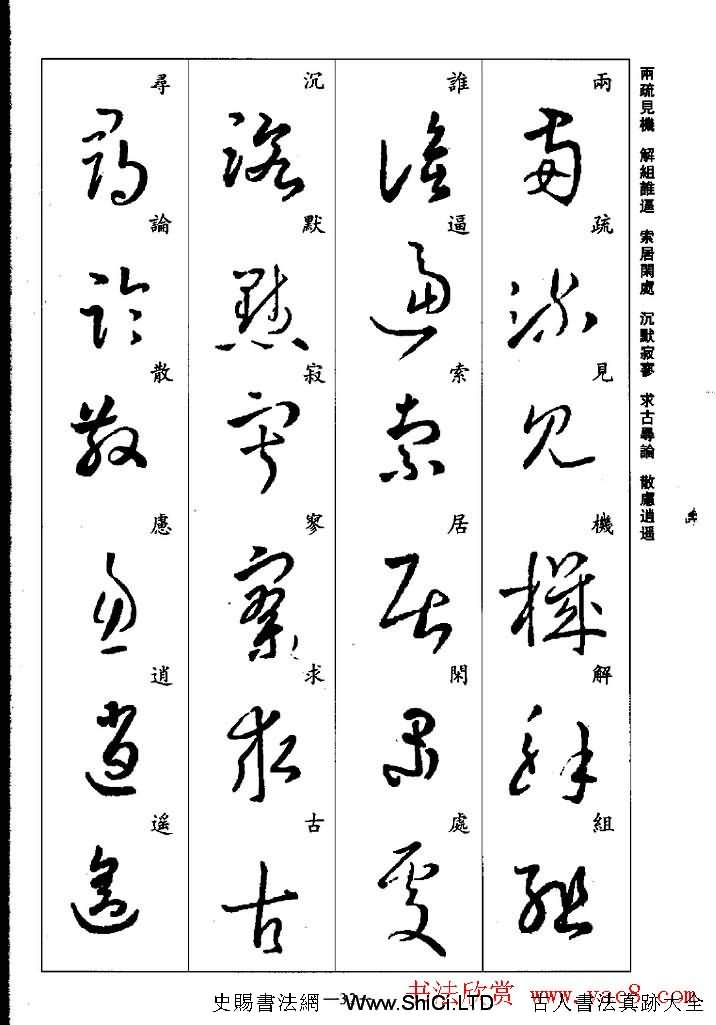 兩疏見機 解組誰逼 索居閑處 沉默寂寥 求古尋論 散慮逍遥
兩疏見機解組
誰逼索居閑處
沉默寂寥求古
尋論散慮逍遥
书法欣赏 www.yac8.com
史賜書法網 www.ShiCi.LTD 古人書法真跡大全